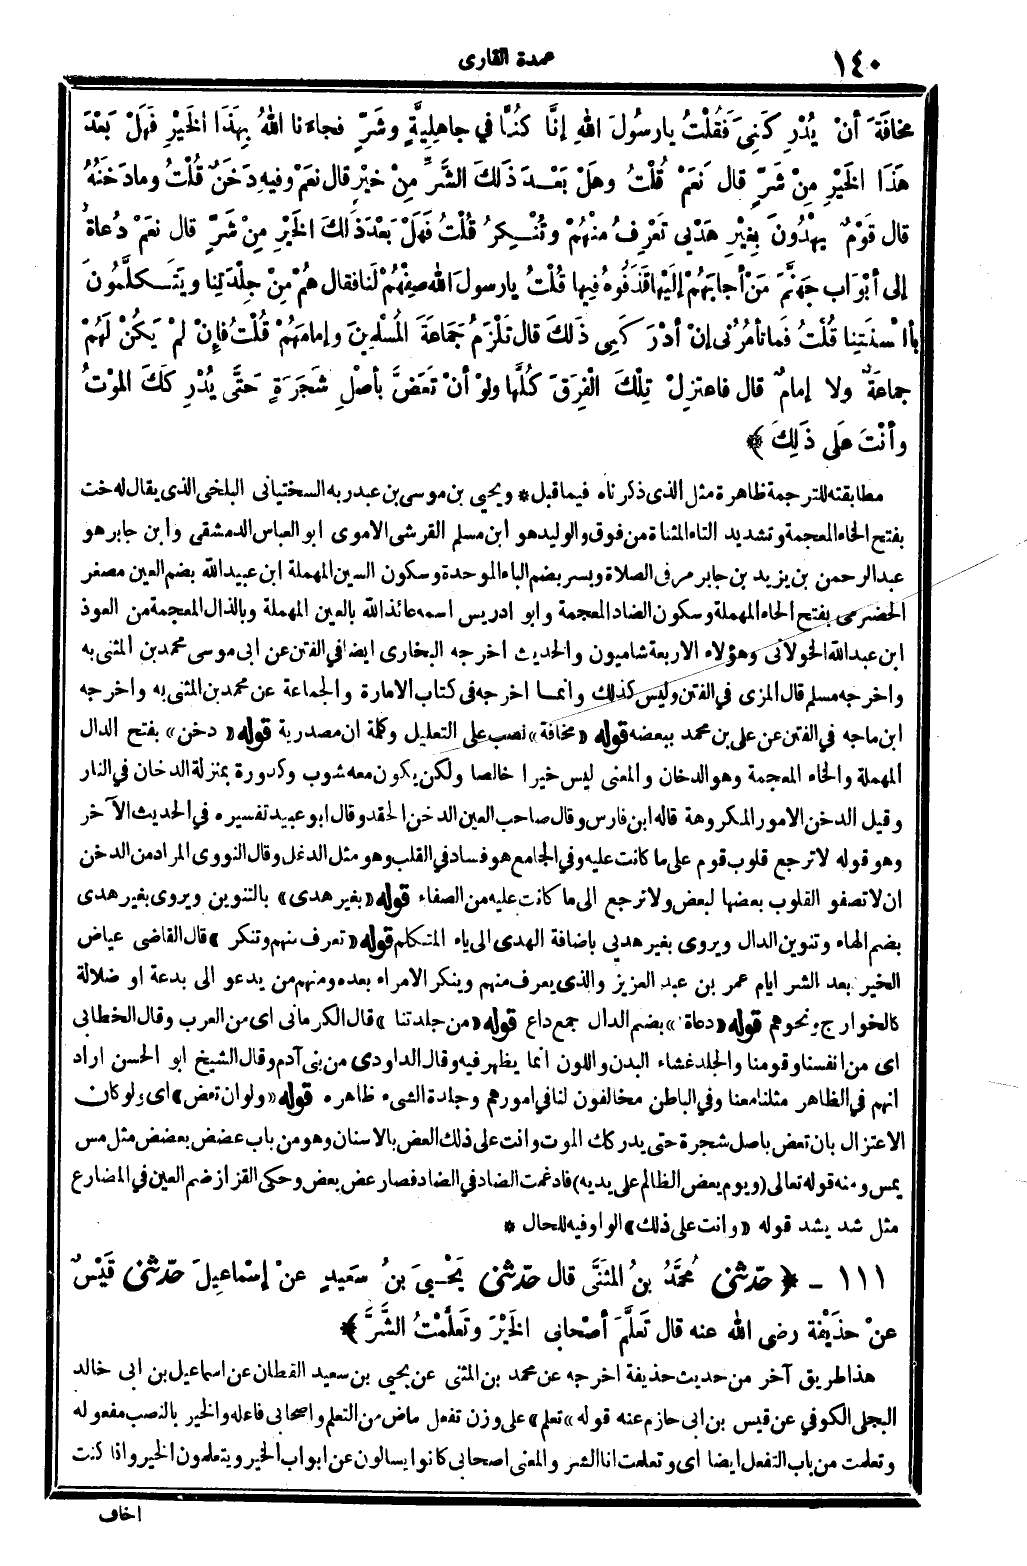 ١٤٠
عمدة القارى
مخافَةَ أنْ يُدْرِكَنِي فَقُلْتُ يارسُولَ اللهِ إنَّا كُنَّا في جاهِلِيَّةٍ وشَرٍّ فجاءَنا اللهُ بِهَذَا الخَيْرِ فَهَلْ بَعْدَ
هَذَا الخَيْرِ مِنْ شَرٍّ قال نَعَمْ قُلْتُ وهَلْ بَعْدَ ذَلِكَ الشَّرِّ مِنْ خَيْرٍ قال نعَمْ وفيهِ دَخَنٌ قُلْتُ ومادَخَنُهُ
قال قَوْمٌ يهْدُونَ بِغَيْرِ هَدْيي تَعْرِفُ مِنْهُمْ وتُنْكِرُ قُلْتُ فَهَلْ بَعْدَ ذَلِكَ الخَيْرِ مِنْ شَرٍّ قال نعَمْ دُعاةٌ
إلى أبْوَابِ جَهَنَّمَ مَنْ أجابَهُمْ إلَيْها قَذَفُوهُ فِيها قُلْتُ يارسولَ اللهِ صِفْهُمْ لَنا فقال هُمْ مِنْ جِلْدَتِنا ويَتَكَلَّمُونَ
بِألْسِنَتِنا قُلْتُ فَما تأمُرُنِي إنْ أدْرَكَنِي ذَلِكَ قال تَلْزَمُ جَمَاعَةَ المُسْلِمِينَ وإمامَهُمْ قُلْتُ فإنْ لَمْ يَكُنْ لَهُمْ
جماعَةٌ ولا إمامٌ قال فاعتزِلْ تِلْكَ الفِرَقَ كُلَّها ولوْ أنْ تَعَضَّ بأصْلِ شَجَرَةٍ حَتَّى يُدْرِكَكَ الموْتُ
وأنْتَ علَى ذَلِكَ ﴾
مطابقته للترجمة ظاهرة مثل الذى ذكرناه فيما قبل * ويحيى بن موسى بن عبدربه السختيانى البلخى الذى يقال له خت
بفتح الخاء المعجمة وتشديد التاء المثناة من فوق والوليد هو ابن مسلم القرشى الاموى ابو العباس الدمشقى وابن جابر هو
عبد الرحمن بن يزيد بن جابر مر فى الصلاة وبسر بضم الباء الموحدة وسكون السين المهملة ابن عبيد الله بضم العين مصغر
الحضرمى بفتح الحاء المهملة وسكون الضاد المعجمة وابو ادريس اسمه عائذ الله بالعين المهملة وبالذال المعجمة من العوذ
ابن عبدالله الخولانى وهؤلاء الاربعة شاميون والحديث اخرجه البخارى ايضا فى الفتن عن ابى موسى محمد بن المثنى به
واخرجه مسلم قال المزى فى الفتن وليس كذلك وانما اخرجه فى كتاب الامارة والجماعة عن محمد بن المثنى به واخرجه
ابن ماجه فى الفتن عن على بن محمد ببعضه قوله «مخافة» نصب على التعليل وكلمة ان مصدرية قوله «دخن» بفتح الدال
المهملة والخاء المعجمة وهو الدخان والمعنى ليس خيرا خالصا ولكن يكون معه شوب وكدورة بمنزلة الدخان فى النار
وقيل الدخن الامور المكروهة قاله ابن فارس وقال صاحب العين الدخن الحقد وقال ابو عبيد تفسيره فى الحديث الآخر
وهو قوله لا ترجع قلوب قوم على ما كانت عليه وفى الجامع هو فساد فى القلب وهو مثل الدغل وقال النووى المراد من الدخن
ان لا تصفو القلوب بعضها لبعض ولا ترجع الى ما كانت عليه من الصفاء قوله «بغير هدى» بالتنوين ويروى بغير هدى
بضم الهاء وتنوين الدال ويروى بغير هديى باضافة الهدى الى ياء المتكلم قوله «تعرف منهم وتنكر» قال القاضى عياض
الخير بعد الشر ايام عمر بن عبد العزيز والذى يعرف منهم وينكر الامراء بعده ومنهم من يدعو الى بدعة او ضلالة
كالخوارج ونحوهم قوله «دعاة» بضم الدال جمع داع قوله «من جلدتنا» قال الكرمانى اى من العرب وقال الخطابى
اى من انفسنا وقومنا والجلد غشاء البدن واللون انما يظهر فيه وقال الداودى من بنى آدم وقال الشيخ ابو الحسن اراد
انهم فى الظاهر مثلنا معنا وفى الباطن مخالفون لنا فى امورهم وجلدة الشىء ظاهره قوله «ولو ان تعض» اى ولو كان
الاعتزال بان تعض باصل شجرة حتى يدركك الموت وانت على ذلك العض بالاسنان وهو من باب عضض بعضض مثل مس
يمس ومنه قوله تعالى (ويوم يعض الظالم على يديه) فادغمت الضاد فى الضاد فصار عض يعض وحكى القزاز ضم العين فى المضارع
مثل شد يشد قوله «وانت على ذلك» الواو فيه للحال *
١١١ - ﴿ حدّثني مُحَمَّدُ بنُ المُثَنَّى قال حدّثني يَحْيىَ بنُ سَعِيدٍ عنْ إسْماعِيلَ حدّثني قَيْسٌ
عنْ حذَيْفة رضى الله عنه قال تَعَلَّمَ أصْحابى الخَيْرَ وتَعلَّمْتُ الشَّرَّ ﴾
هذا طريق آخر من حديث حذيفة اخرجه عن محمد بن المثنى عن يحيى بن سعيد القطان عن اسماعيل بن ابى خالد
البجلى الكوفى عن قيس بن ابى حازم عنه قوله «تعلم» على وزن تفعل ماض من التعلم واصحابى فاعله والخير بالنصب مفعوله
وتعلمت من باب التفعل ايضا اى وتعلمت انا الشر والمعنى اصحابى كانوا يسالون عن ابواب الخير ويتعلمون الخير وانا كنت
اخاف